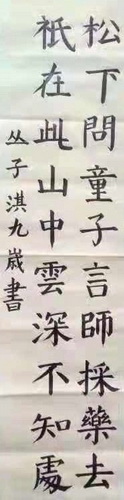 松下問童子言師採藥去
祇在此山中雲深不知處
丛子淇九歲書